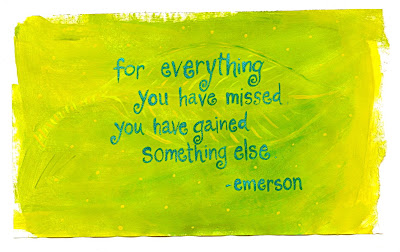 for everything
you have missed
you have gained
something else
-emerson